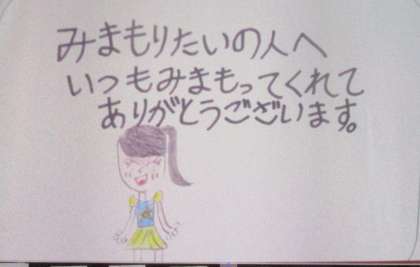 みまもりたいの人へ
いつもみまもってくれて
ありがとうございます。